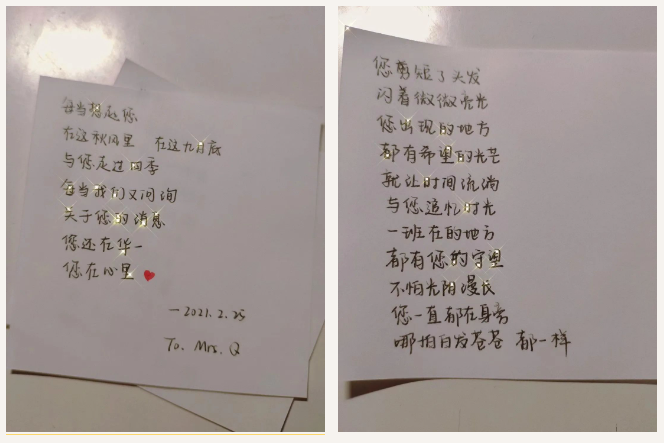 每当想起您
在这秋风里 在这九月底
与您走过四季
每当我们又问询
关于您的消息
您还在华一
您在心里
-2021.2.25
To. Mrs. Q
您剪短了头发
闪着微微亮光
您出现的地方
都有希望的光芒
就让时间流淌
与您追忆时光
一班在的地方
都有您的守望
不怕光阴漫长
您一直都在身旁
哪怕白发苍苍 都一样